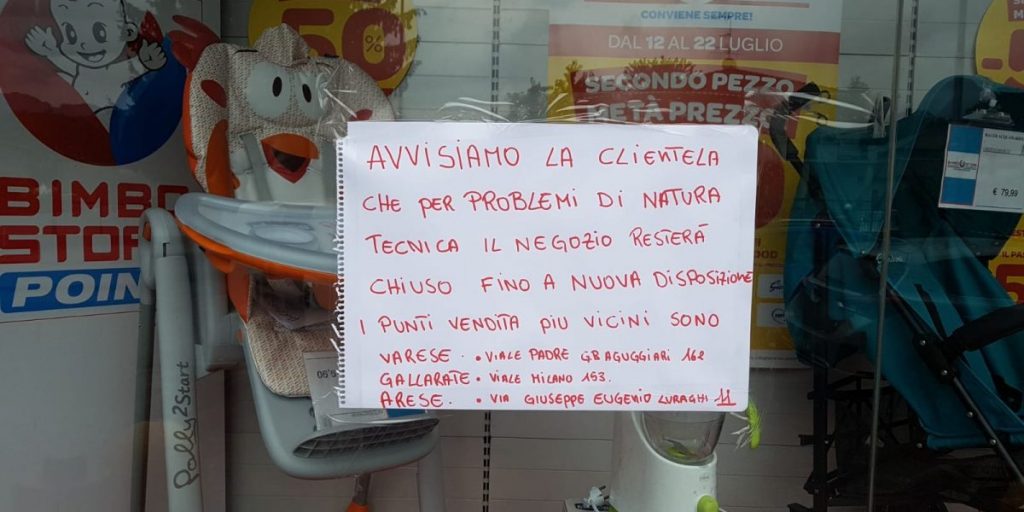 CONVIENE SEMPRE!
DAL 12 AL 22 LUGLIO
SECONDO PEZZO
METÀ PREZZO
50%
BIMBO
STOR
POIN
Polly2Start
AVVISIAMO LA CLIENTELA
CHE PER PROBLEMI DI NATURA
TECNICA IL NEGOZIO RESTERÀ
CHIUSO FINO A NUOVA DISPOSIZIONE
I PUNTI VENDITA PIU VICINI SONO
VARESE. • VIALE PADRE G.B AGUGGIARI 162
GALLARATE • VIALE MILANO 153.
ARESE. • VIA GIUSEPPE EUGENIO LURAGHI 11
€ 79,99